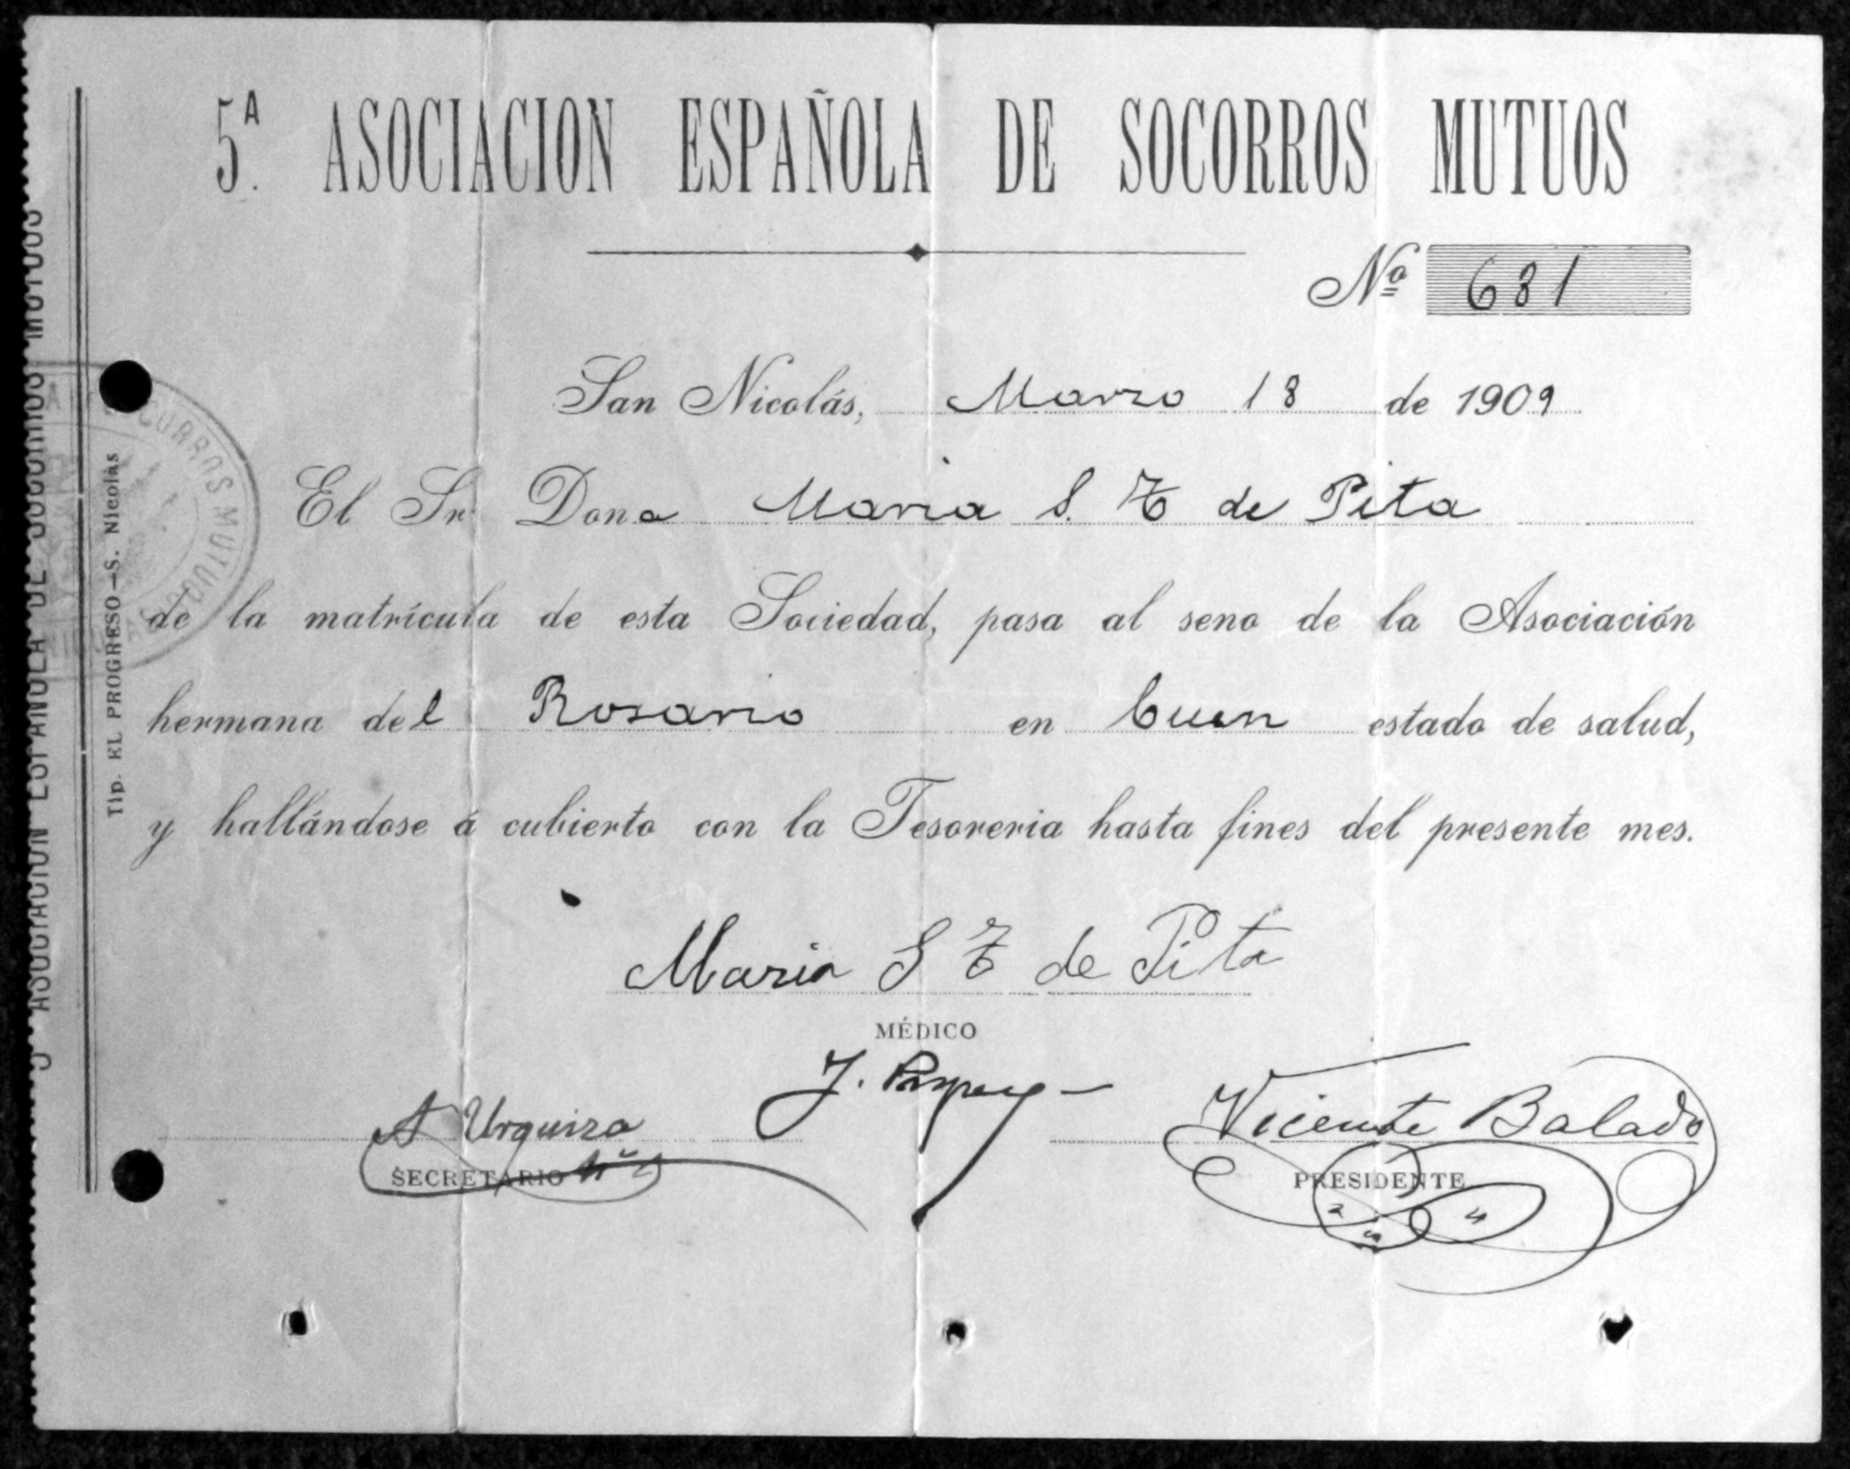 5ᴬ. ASOCIACION ESPAÑOLA DE SOCORROS MUTUOS
Nº 681
San Nicolás, Marzo 18 de 1909
El Sr Dona Maria S. Z de Pita
de la matrícula de esta Sociedad, pasa al seno de la Asociación
hermana del Rosario en buen estado de salud,
y hallándose á cubierto con la Tesoreria hasta fines del presente mes.
Maria S Z de Pita
MÉDICO
J.
A Urquiza
SECRETARIO
Vicente Balado
PRESIDENTE
Tip. EL PROGRESO—S. Nicolás
ASOCIACION ESPAÑOLA DE SOCORROS MUTUOS
SOCORROS MUTUOS